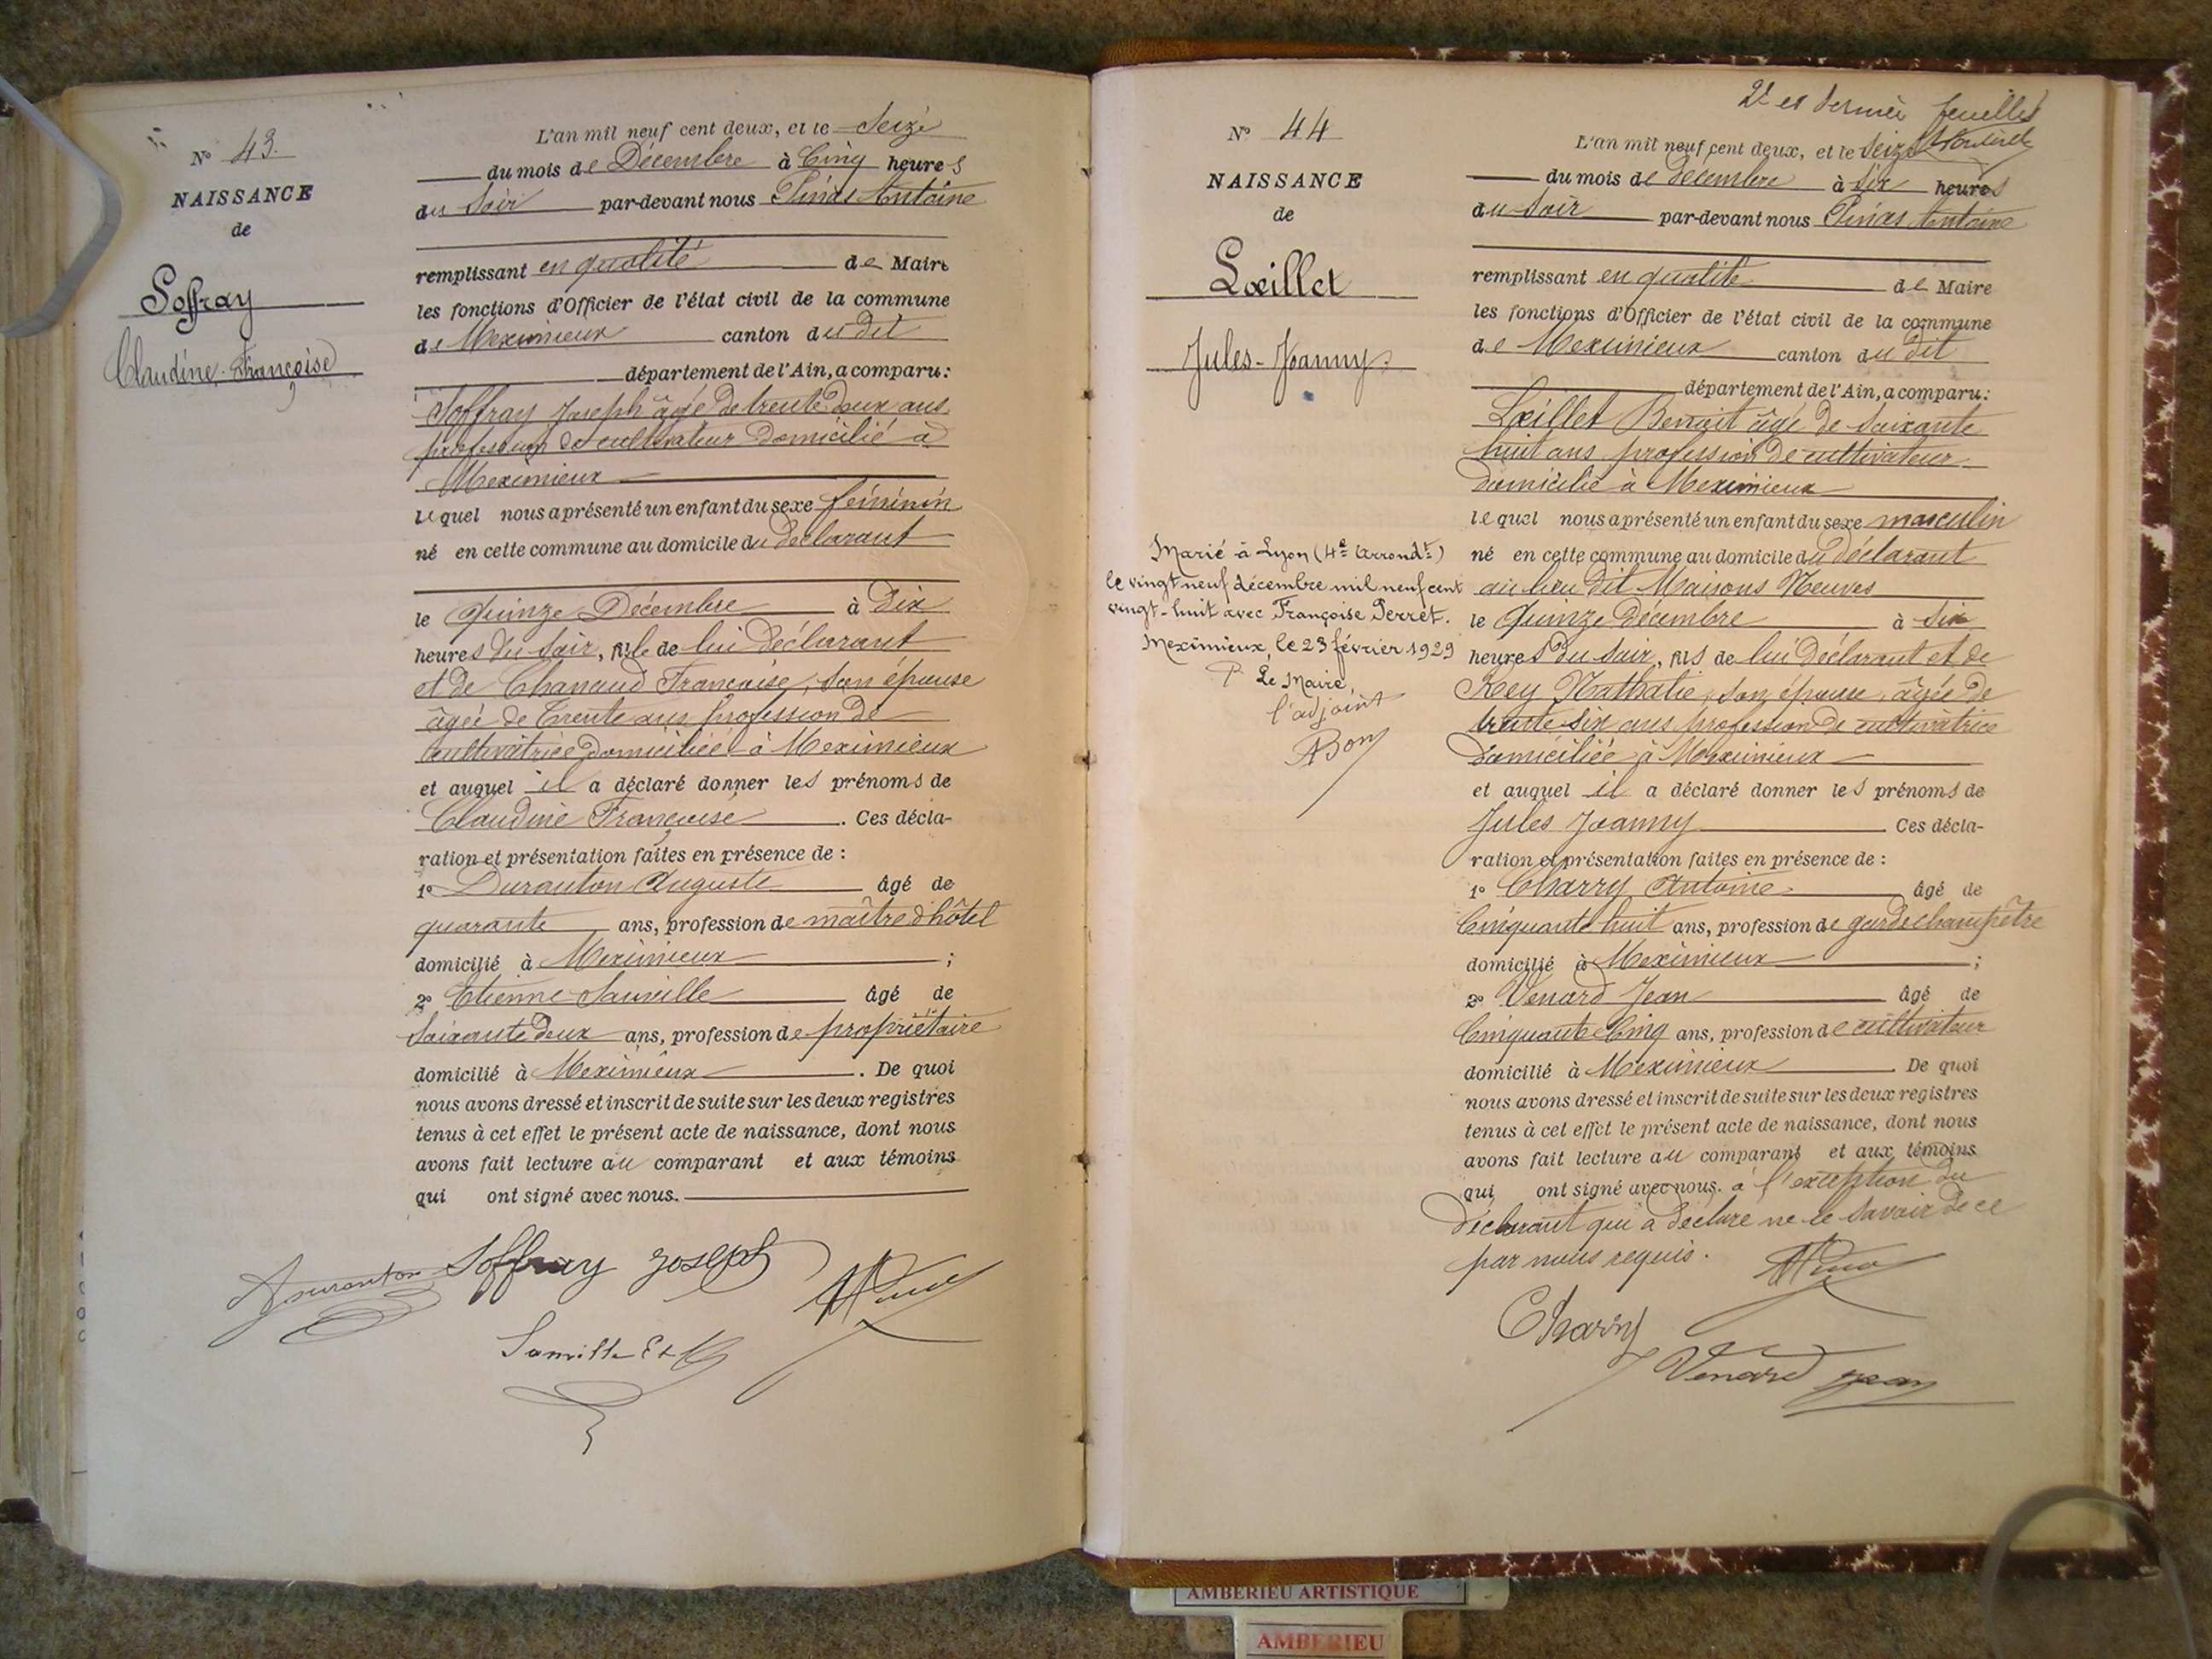 N° 43.
NAISSANCE
de
Soffray
Claudine Françoise
L'an mil neuf cent deux, et le Seize
du mois de Décembre à Cinq heures
du Soir par-devant nous Antoine
remplissant en qualité de Maire
les fonctions d'Officier de l'état civil de la commune
de Meximieux canton du dit
département de l'Ain, a comparu :
Soffray Joseph âgé de trente deux ans
profession de cultivateur domicilié à
Meximieux
lequel nous a présenté un enfant du sexe féminin
né en cette commune au domicile du déclarant
le quinze Décembre à dix
heures du soir, fille de lui déclarant
et de Chanaud Françoise, son épouse
âgée de trente ans profession de
cultivatrice domiciliée à Meximieux
et auquel il a déclaré donner les prénoms de
Claudine Françoise. Ces décla-
ration et présentation faites en présence de :
1° Duranton Auguste âgé de
quarante ans, profession de maître d'hôtel
domicilié à Meximieux ;
2° Etienne âgé de
Soixante deux ans, profession de propriétaire
domicilié à Meximieux. De quoi
nous avons dressé et inscrit de suite sur les deux registres
tenus à cet effet le présent acte de naissance, dont nous
avons fait lecture au comparant et aux témoins
qui ont signé avec nous.
Duranton Soffray Joseph
2e et dernière feuilles
N° 44
NAISSANCE
de
Lœillet
Jules-Joanny.
Marié à Lyon (4e arrondt)
le vingt neuf décembre mil neuf cent
vingt-huit avec Françoise Perret.
Meximieux, le 23 février 1929
P. Le Maire,
l'adjoint
L'an mil neuf cent deux, et le Seize
du mois de décembre à Six heures
du soir par-devant nous Antoine
remplissant en qualité de Maire
les fonctions d'Officier de l'état civil de la commune
de Meximieux canton du dit
département de l'Ain, a comparu :
Lœillet Benoit âgé de soixante
huit ans profession de cultivateur
domicilié à Meximieux
lequel nous a présenté un enfant du sexe masculin
né en cette commune au domicile du déclarant
au lieu dit Maisons Neuves
le quinze Décembre à six
heures du soir, fils de lui déclarant et de
Rey Nathalie, son épouse, âgée de
trente six ans profession de cultivatrice
domiciliée à Meximieux
et auquel il a déclaré donner les prénoms de
Jules Joanny Ces décla-
ration et présentation faites en présence de :
1° Charry Antoine âgé de
Cinquante huit ans, profession de garde champêtre
domicilié à Meximieux ;
2° Venard Jean âgé de
Cinquante Cinq ans, profession de cultivateur
domicilié à Meximieux. De quoi
nous avons dressé et inscrit de suite sur les deux registres
tenus à cet effet le présent acte de naissance, dont nous
avons fait lecture au comparant et aux témoins
qui ont signé avec nous. à l'exception du
déclarant qui a déclaré ne le savoir de ce
par nous requis.
Charry
Venard Jean
AMBERIEU ARTISTIQUE
AMBERIEU